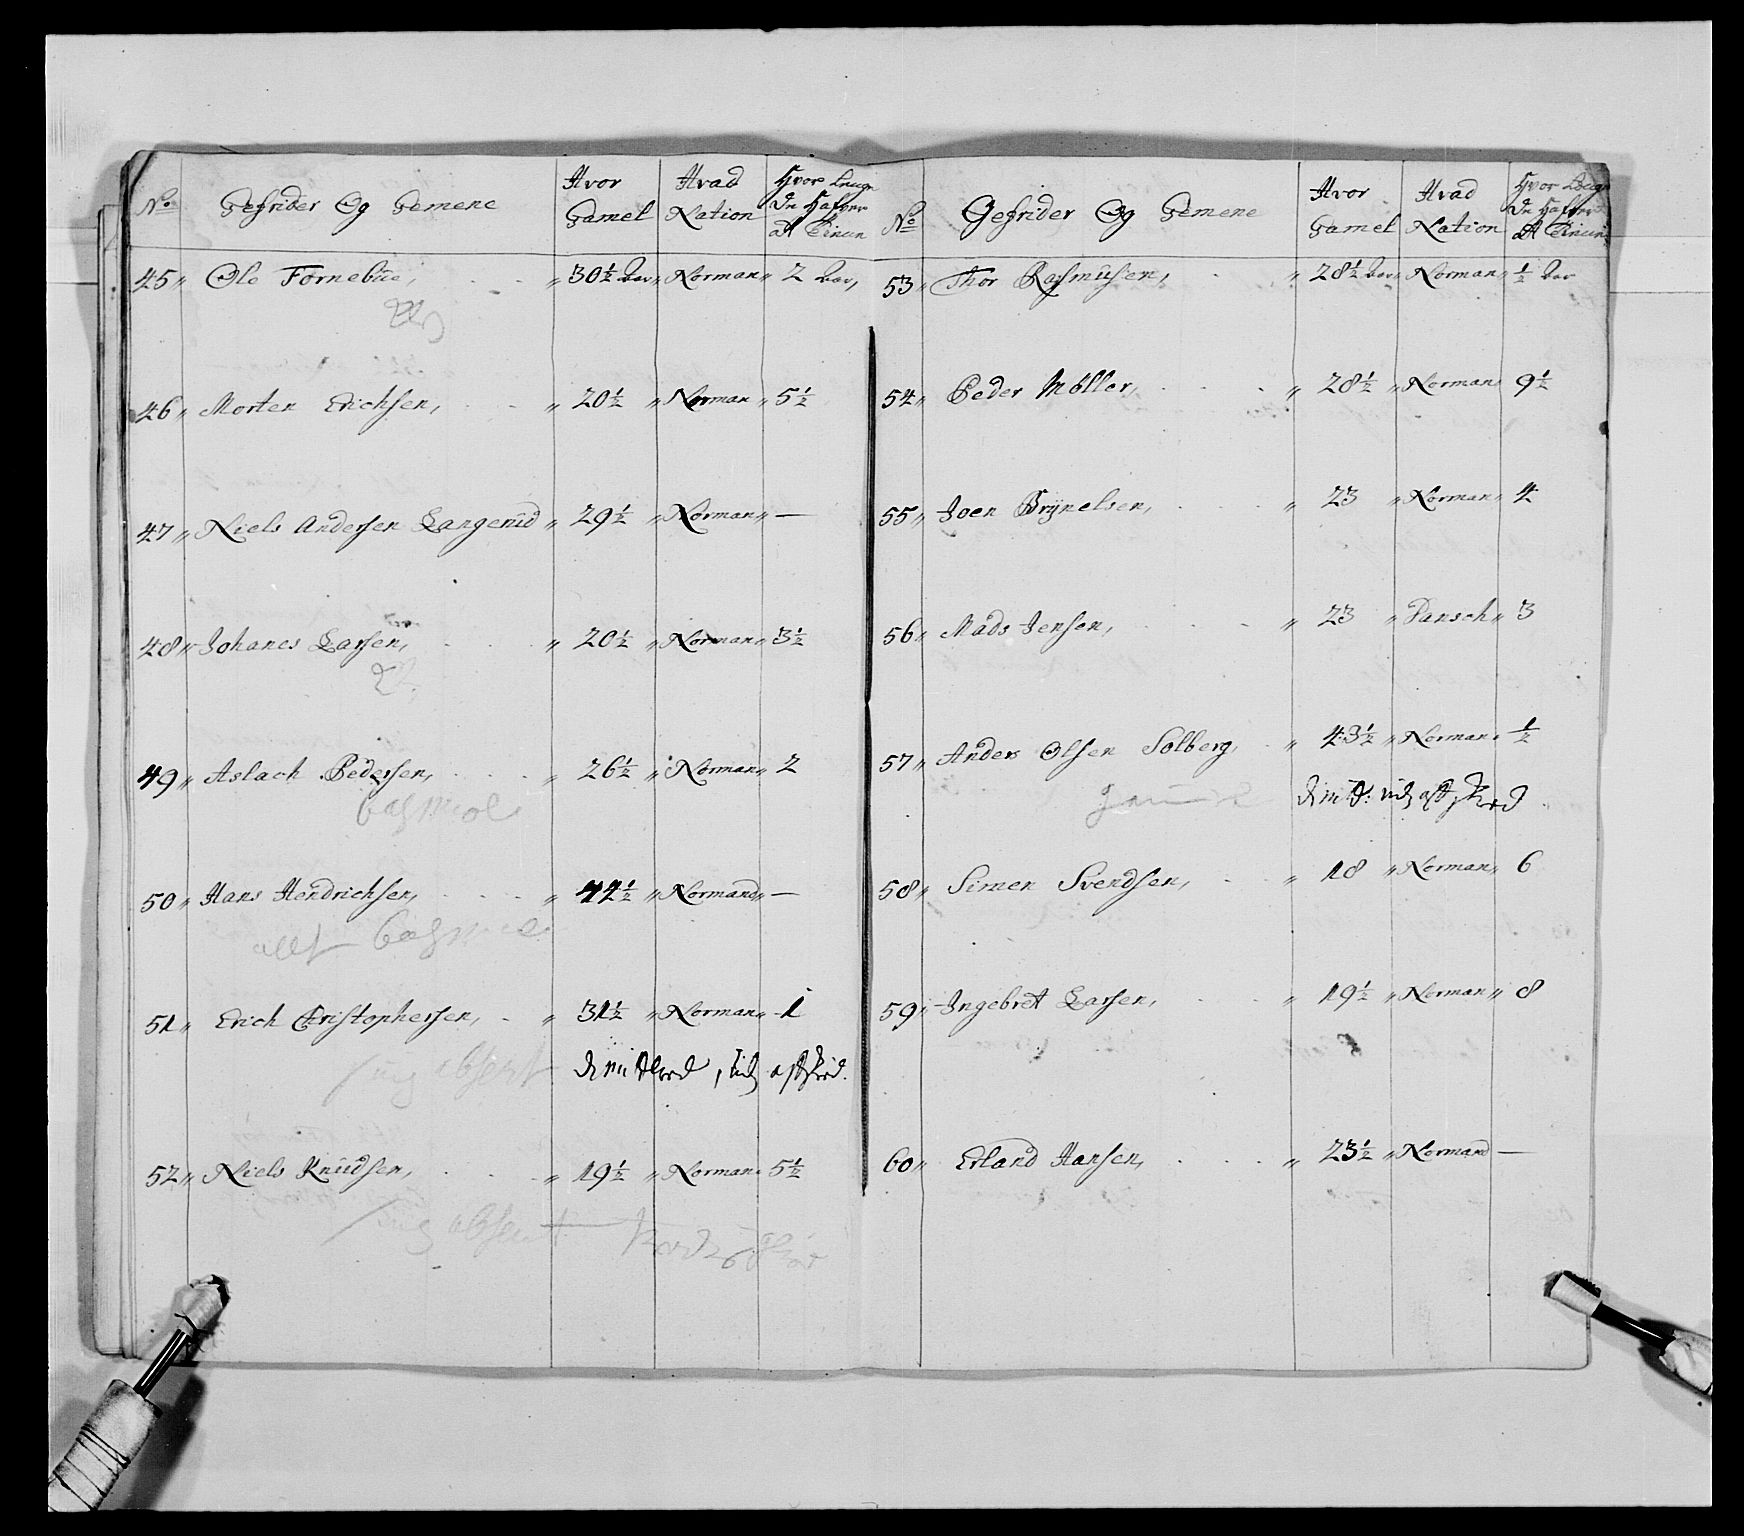 No Gefrider Og Gemene Hvor Gamel Hvad Nation Hvor Lenge de Hafver
45 Ole Fornebûe, 30½ Norman 2
46 Morten Erichsen, 20½ Norman 5½
47 Niels Andersen Langerûd 29½ Norman —
48 Johanes Larsen, 20½ Norman 3½
49 Aslach Pedersen, 26½ Norman 2
50 Hans Hendrichsen, 44½ Normand —
51 Erich Christophersen, 31½ Norman 1
absent
52 Niels Knûdsen, 19½ Norman 5½
absent
No Gefrider Og Gemene Hvor Gamel Hvad Nation Hvor Lenge de Hafver
53 Thor Rasmûsen, 28½ Norman ½
54 Peder Möller, 28½ Norman 9½
55 Joen Brÿnelsen, 23 Norman 4
56 Mads Jensen, 23 Dansch 3
57 Anders Olsen Solberg, 43½ Norman ½
58 Simen Svendsen, 18 Norman 6
59 Ingebret Larsen, 19½ Norman 8
60 Erland Hansen, 23½ Normand —